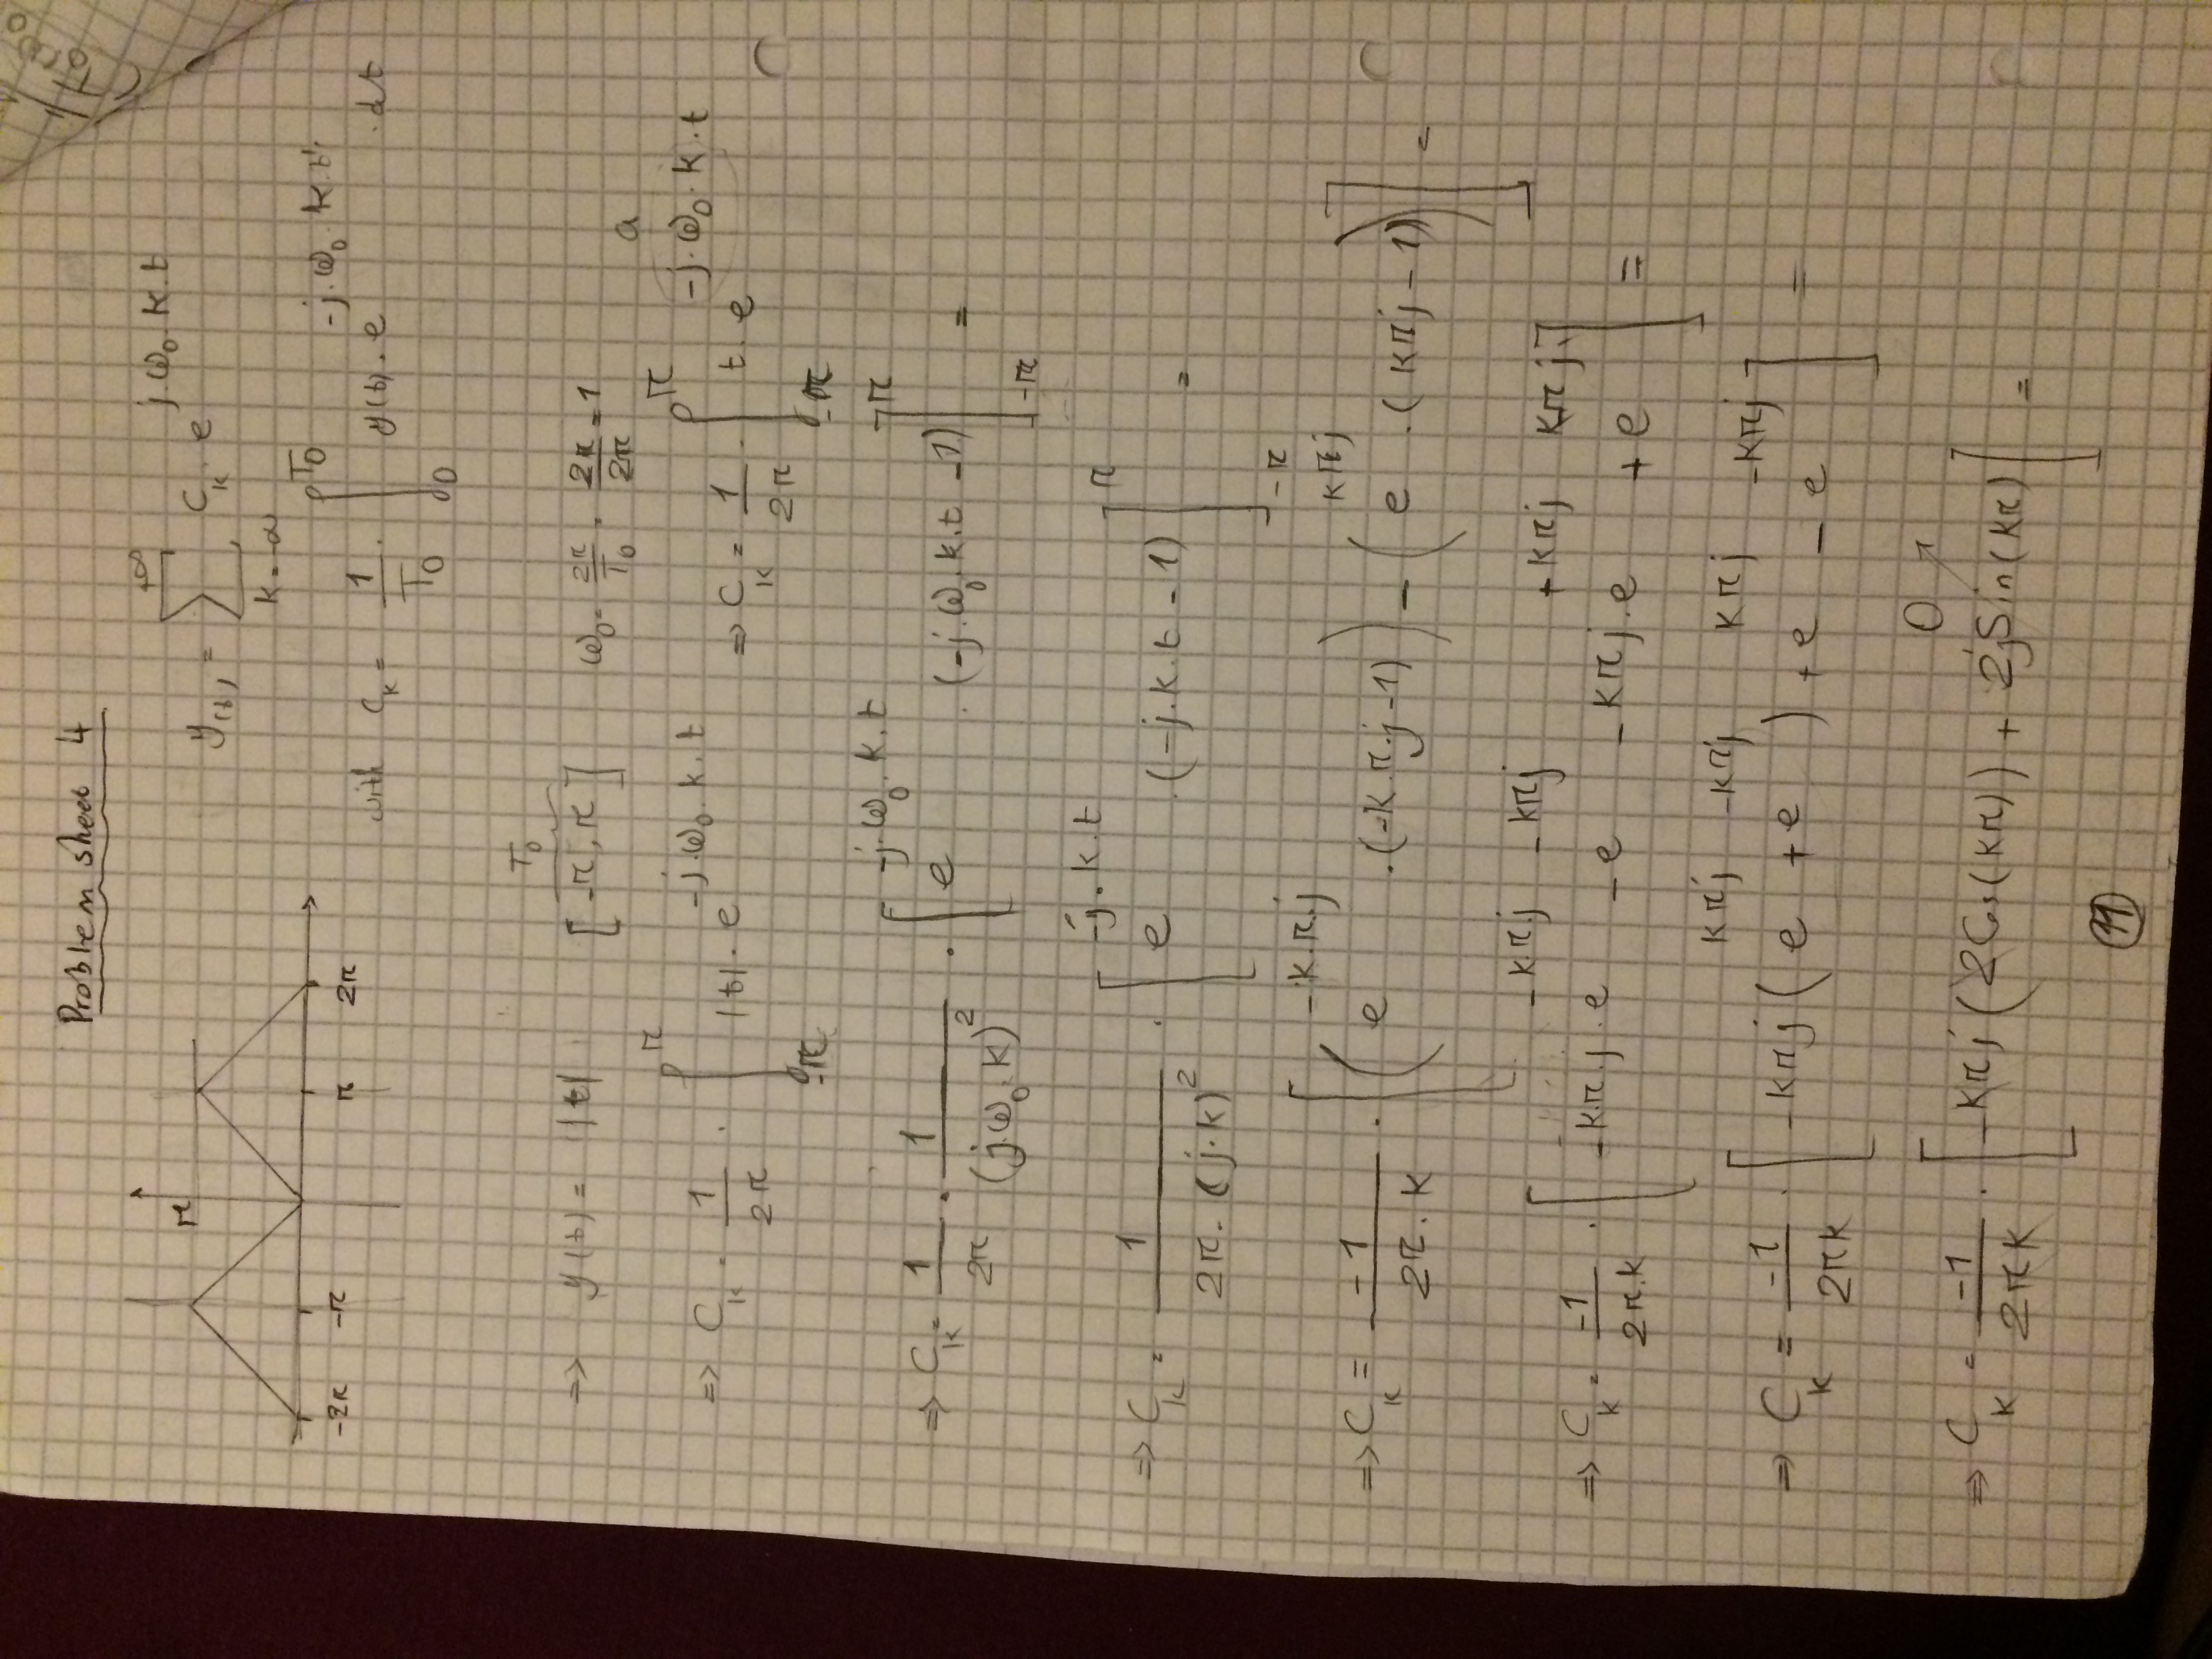 Problem sheet 4
π
-2π -π π 2π
y(t) = ∑_{k=-∞}^{+∞} C_k · e^{j·ω_0·k·t}
with C_k = 1/T_0 · ∫_0^{T_0} y(t) · e^{-j·ω_0·k·t} · dt
=> y(t) = |t| [-π, π] T_0 ω_0 = 2π/T_0 = 2π/2π = 1
=> C_k = 1/2π · ∫_{-π}^{π} |t| · e^{-j·ω_0·k·t} => C_k = 1/2π · ∫_{-π}^{π} t · e^{-j·ω_0·k·t} a
=> C_k = 1/2π · 1/(j·ω_0·k)^2 · [e^{-j·ω_0·k·t} · (-j·ω_0·k·t - 1)]_{-π}^{π} =
=> C_k = 1/(2π·(j·k)^2) · [e^{-j·k·t} · (-j·k·t - 1)]_{-π}^{π} =
=> C_k = -1/(2π·k) · [(e^{-k·π·j} · (-k·π·j - 1)) - (e^{kπj} · (kπj - 1))] =
=> C_k = -1/(2π·k) · [-k·π·j·e^{-k·π·j} - e^{-kπj} - kπj·e^{+kπj} + e^{kπj}] =
=> C_k = -1/(2πk) · [-kπj(e^{kπj} + e^{-kπj}) + e^{kπj} - e^{-kπj}] =
=> C_k = -1/(2πk) · [-kπj(2Cos(kπ)) + 2jSin(kπ)] = 0
11